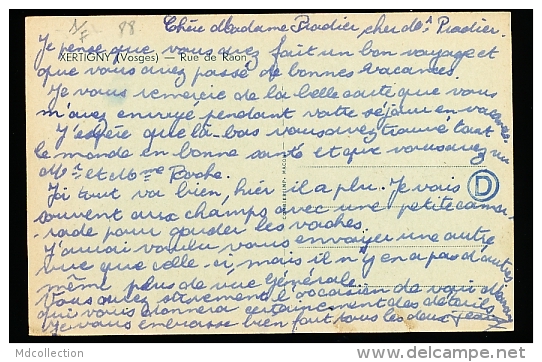 88
Chère Madame Pradier, cher Mr Pradier.
Je pense que vous avez fait un bon voyage et
XERTIGNY (Vosges) — Rue de Raon
que vous avez passé de bonnes vacances.
Je vous remercie de la belle carte que vous
m'avez envoyé pendant votre séjour en vacances.
J'espère que là-bas vous avez trouvé tout
le monde en bonne santé et que vous avez vu
Mr et Mme Roche.
Ici tout va bien, hier il a plu. Je vais
souvent aux champs avec une petite cama-
rade pour garder les vaches.
J'aurai voulu vous envoyer une autre
vue que celle-ci, mais il n'y en a pas d'autres
même plus de vue générale.
Vous aurez sûrement l'occasion de voir Maman
qui vous donnera certainement des détails
Je vous embrasse bien fort tous les deux Jean
D
COMBIER IMP. MACON
Mdcollection
www.delcampe.net